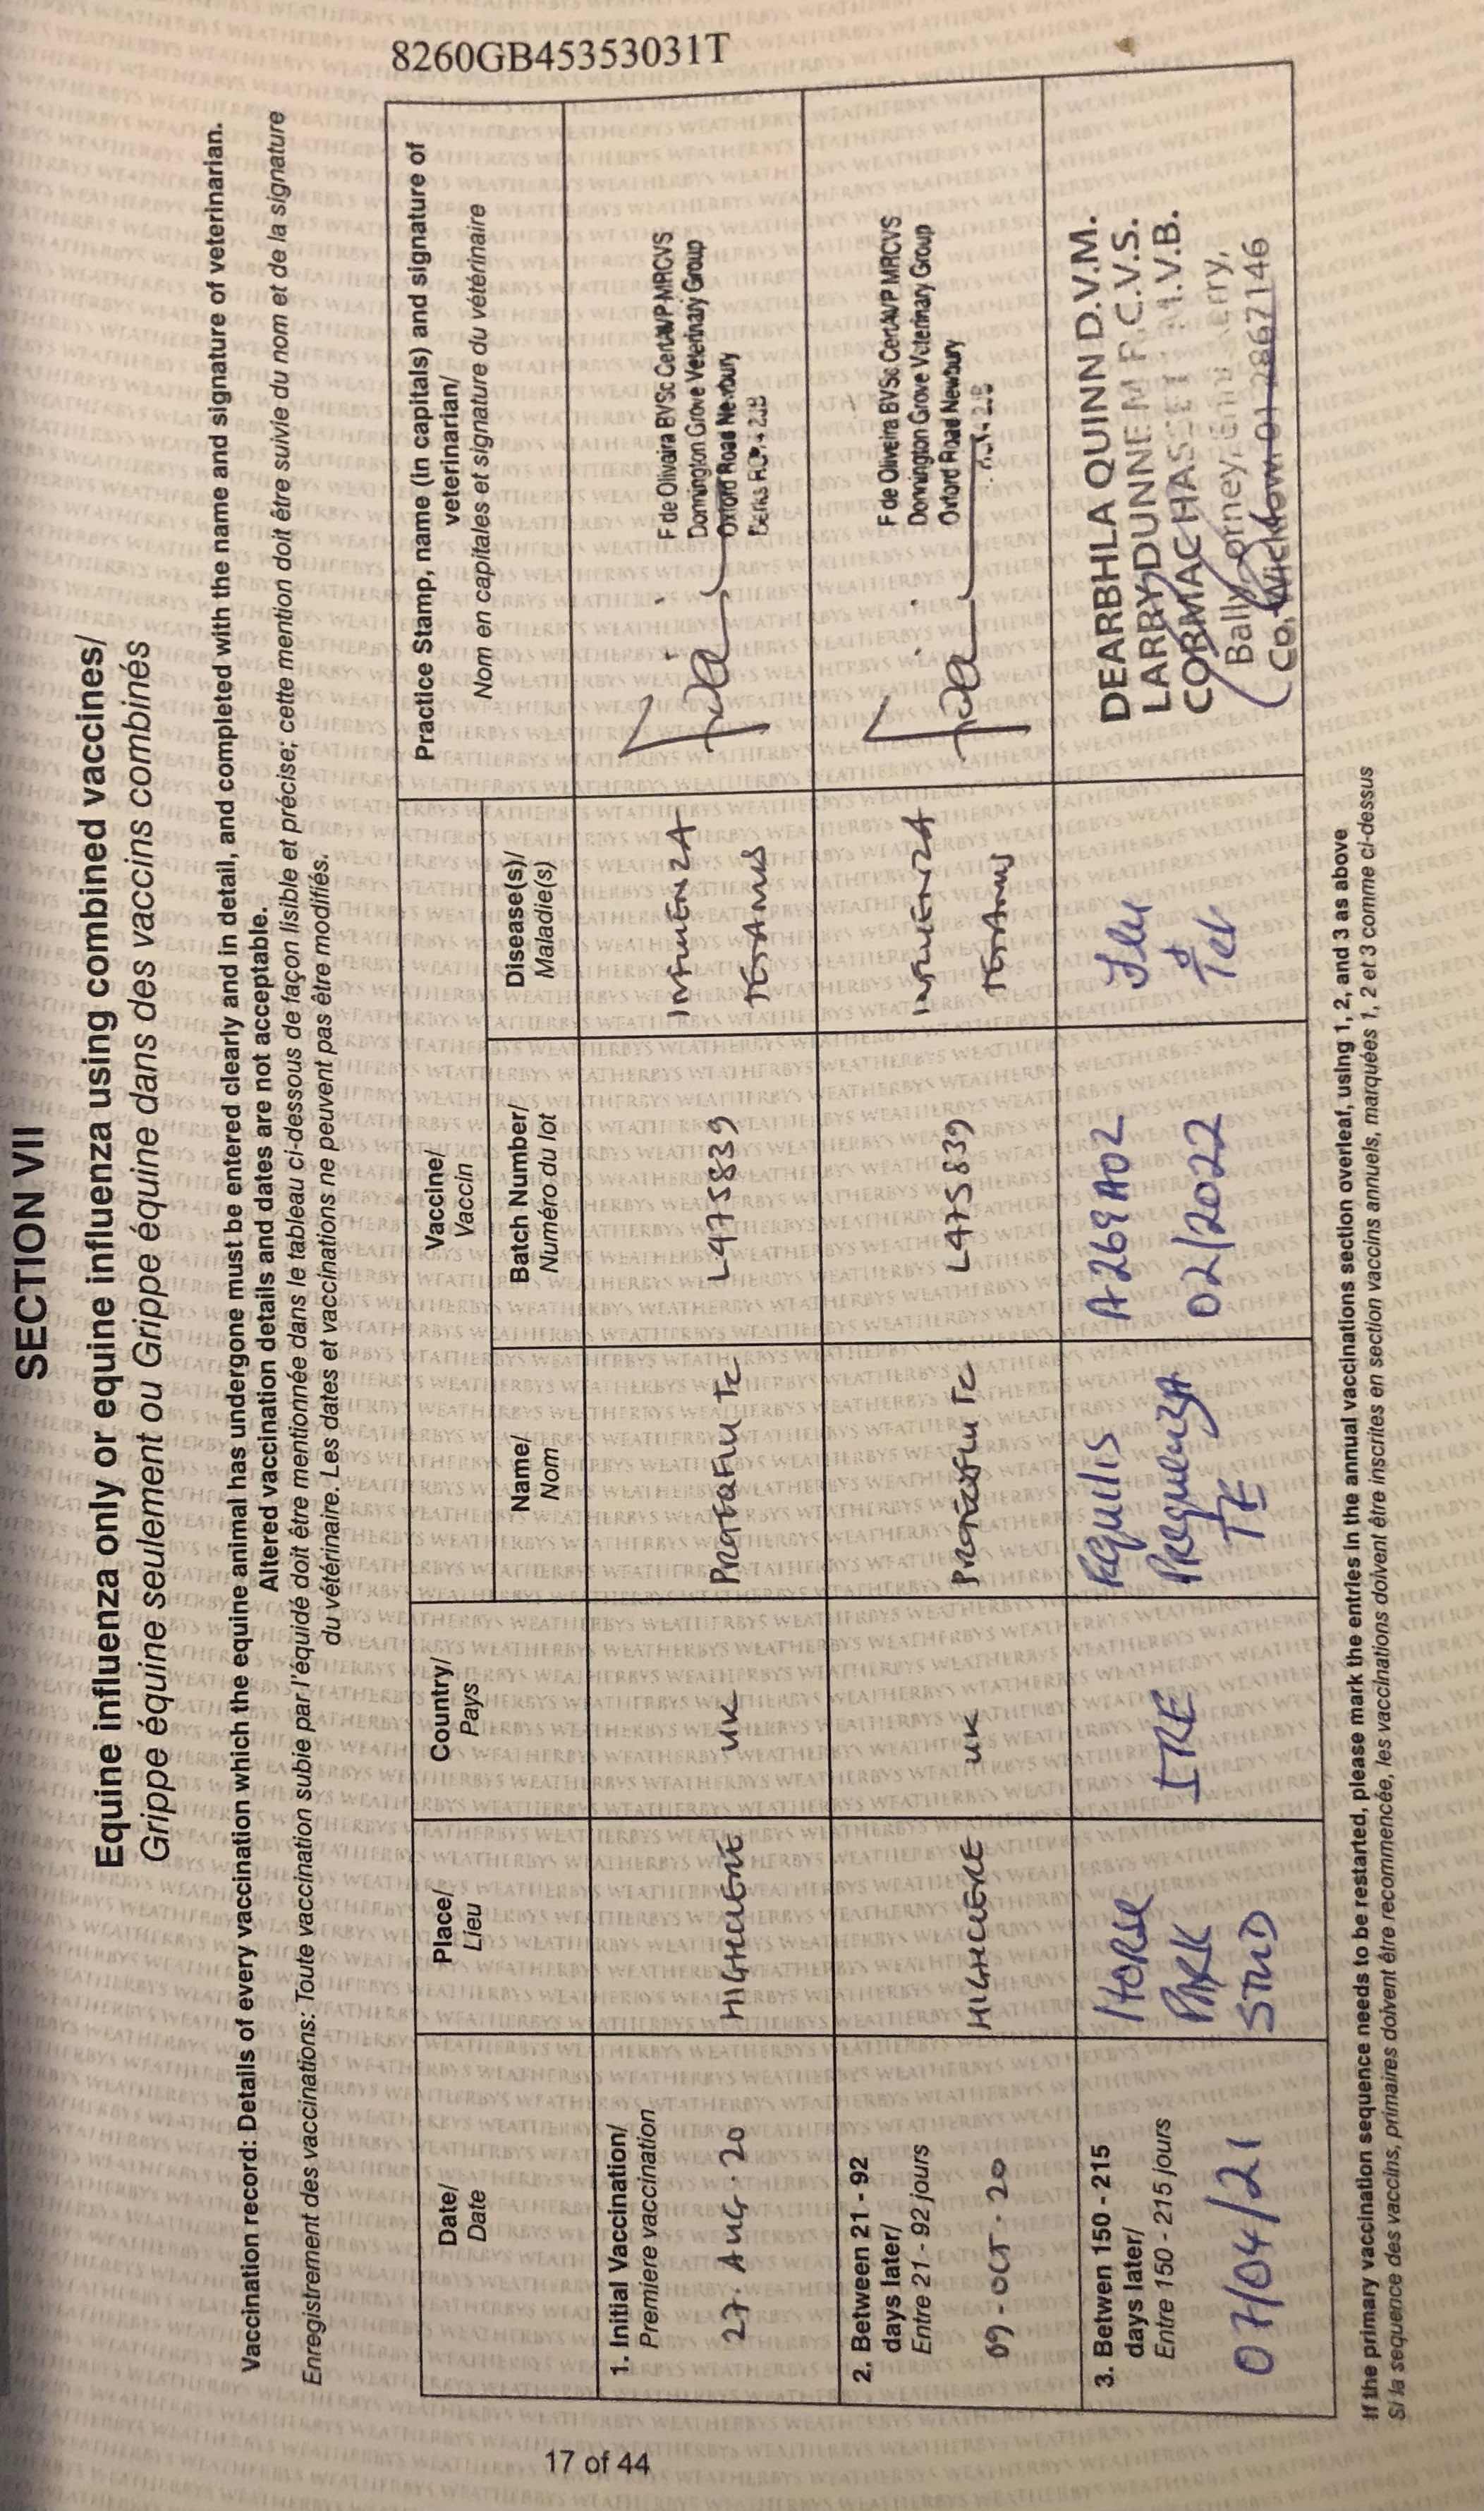 8260GB45353031T
SECTION VII
Equine influenza only or equine influenza using combined vaccines/
Grippe équine seulement ou Grippe équine dans des vaccins combinés
Vaccination record: Details of every vaccination which the equine animal has undergone must be entered clearly and in detail, and completed with the name and signature of veterinarian.
Altered vaccination details and dates are not acceptable.
Enregistrement des vaccinations: Toute vaccination subie par l'équidé doit être mentionnée dans le tableau ci-dessous de façon lisible et précise; cette mention doit être suivie du nom et de la signature
du vétérinaire. Les dates et vaccinations ne peuvent pas être modifiés.
Date/
Date
Place/
Lieu
Country/
Pays
Vaccine/
Vaccin
Name/
Nom
Batch Number/
Numéro du lot
Disease(s)/
Maladie(s)
Practice Stamp, name (in capitals) and signature of
veterinarian/
Nom en capitales et signature du vétérinaire
1. Initial Vaccination/
Premiere vaccination
27. AUG. 20
HIGHCLERE
UK
PROTEQFLU TC
L475839
INFLUENZA
TETANUS
F de Oliveira BVSc CertAVP MRCVS
Donnington Grove Veterinary Group
Oxford Road Newbury
Berks RG14 2JB
2. Between 21 - 92
days later/
Entre 21 - 92 jours
09-OCT. 20
HIGHCLERE
UK
PROTEQFLU TC
L475839
INFLUENZA
TETANUS
F de Oliveira BVSc CertAVP MRCVS
Donnington Grove Veterinary Group
Oxford Road Newbury
2JB
3. Betwen 150 - 215
days later/
Entre 150 - 215 jours
07/04/21
HORSE
PARK
STUD
IRE
Equilis
Prequenza
TE
A269A02
02/2022
Flu
&
Tet
DEARBHLA QUINN D.V.M.
LARRY DUNNE M.R.C.V.S.
CORMAC HASSETT M.V.B.
Ballyorney, Enniskerry,
Co. Wicklow. 01 2867146
If the primary vaccination sequence needs to be restarted, please mark the entries in the annual vaccinations section overleaf, using 1, 2, and 3 as above
Si la sequence des vaccins, primaires doivent être recommencée, les vaccinations doivent être inscrites en section vaccins annuels, marquées 1, 2 et 3 comme ci-dessus
17 of 44